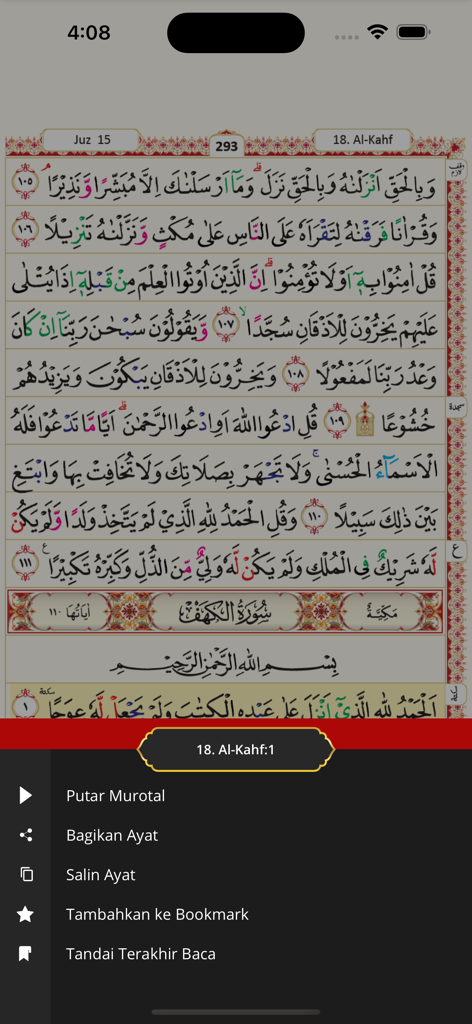 4:08
Juz 15
293
18. Al-Kahf
وَبِالْحَقِّ اَنْزَلْنٰهُ وَبِالْحَقِّ نَزَلَۗ وَمَآ اَرْسَلْنٰكَ اِلَّا مُبَشِّرًا وَّنَذِيْرًاۘ ١٠٥
وَقُرْاٰنًا فَرَقْنٰهُ لِتَقْرَاَهٗ عَلَى النَّاسِ عَلٰى مُكْثٍ وَّنَزَّلْنٰهُ تَنْزِيْلًا ١٠٦
قُلْ اٰمِنُوْا بِهٖٓ اَوْ لَا تُؤْمِنُوْاۗ اِنَّ الَّذِيْنَ اُوْتُوا الْعِلْمَ مِنْ قَبْلِهٖٓ اِذَا يُتْلٰى
عَلَيْهِمْ يَخِرُّوْنَ لِلْاَذْقَانِ سُجَّدًاۙ ١٠٧ وَّيَقُوْلُوْنَ سُبْحٰنَ رَبِّنَآ اِنْ كَانَ
وَعْدُ رَبِّنَا لَمَفْعُوْلًا ١٠٨ وَيَخِرُّوْنَ لِلْاَذْقَانِ يَبْكُوْنَ وَيَزِيْدُهُمْ
خُشُوْعًا ۩ ١٠٩ قُلِ ادْعُوا اللّٰهَ اَوِ ادْعُوا الرَّحْمٰنَۗ اَيًّا مَّا تَدْعُوْا فَلَهُ
سجدة
الْاَسْمَاۤءُ الْحُسْنٰىۚ وَلَا تَجْهَرْ بِصَلَاتِكَ وَلَا تُخَافِتْ بِهَا وَابْتَغِ
بَيْنَ ذٰلِكَ سَبِيْلًا ١١٠ وَقُلِ الْحَمْدُ لِلّٰهِ الَّذِيْ لَمْ يَتَّخِذْ وَلَدًا وَّلَمْ يَكُنْ
لَّهٗ شَرِيْكٌ فِى الْمُلْكِ وَلَمْ يَكُنْ لَّهٗ وَلِيٌّ مِّنَ الذُّلِّ وَكَبِّرْهُ تَكْبِيْرًا ࣖ ١١١
ع
مَكِّيَّةٌ
سُوْرَةُ الْكَهْفِ
اٰيَاتُهَا ١١٠
بِسْمِ اللّٰهِ الرَّحْمٰنِ الرَّحِيْمِ
اَلْحَمْدُ لِلّٰهِ الَّذِيْٓ اَنْزَلَ عَلٰى عَبْدِهِ الْكِتٰبَ وَلَمْ يَجْعَلْ لَّهٗ عِوَجًا سكتة ١
سكتة
18. Al-Kahf:1
Putar Murotal
Bagikan Ayat
Salin Ayat
Tambahkan ke Bookmark
Tandai Terakhir Baca